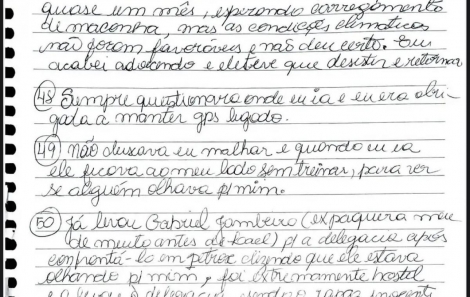 quase um mês, esperando carregamento
de maconha, mas as condições climáticas
não foram favoráveis e não deu certo. Eu
acabei adoecendo e ele teve que desistir e retornar
48 Sempre questionava onde eu ia e eu era obri-
gada a manter gps ligado.
49 Não deixava eu malhar e quando eu ia
ele ficava ao meu lado sem treinar, para ver
se alguém olhava p/ mim.
50 Já levou Gabriel Jambeiro (ex paquera meu
de muito antes de Kael) p/ a delegacia após
confrontá-lo em dizendo que ele estava
olhando p/ mim, foi extremamente hostil
e a delegacia, sendo o rapaz inocente